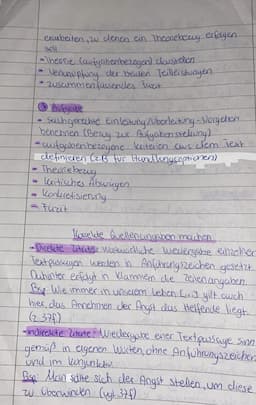 erarbeiten, zu denen ein Theoriebezug erfolgen
soll
- Theorie (aufgabenbezogen) darstellen
- Verknüpfung der beiden Teilleistungen
- zusammenfassendes Fazit
③ Aufgabe
- Sachgerechte Einleitung/Überleitung - Vorgehen
benennen (Bezug zur Aufgabenstellung)
- aufgabenbezogene Kriterien aus dem Text
definieren (z.B. für Handlungsoptionen)
- Theoriebezug
- kritisches Abwägen
- Konkretisierung
- Fazit
Korrekte Quellenangaben machen
- Direkte Zitate: Wortwörtliche Wiedergabe einzelner
Textpassagen werden in Anführungszeichen gesetzt.
Dahinter erfolgt in Klammern die Zeilenangaben.
Bsp. Wie immer in unserem Leben [...] gilt auch
hier, das Annehmen der Angst das Helfende liegt.
(Z. 37f)
- Indirekte Zitate: Wiedergabe einer Textpassage sinn
gemäß in eigenen Worten, ohne Anführungszeichen
und im Konjunktiv.
Bsp: Man sollte sich der Angst stellen, um diese
zu überwinden (vgl. 37f)